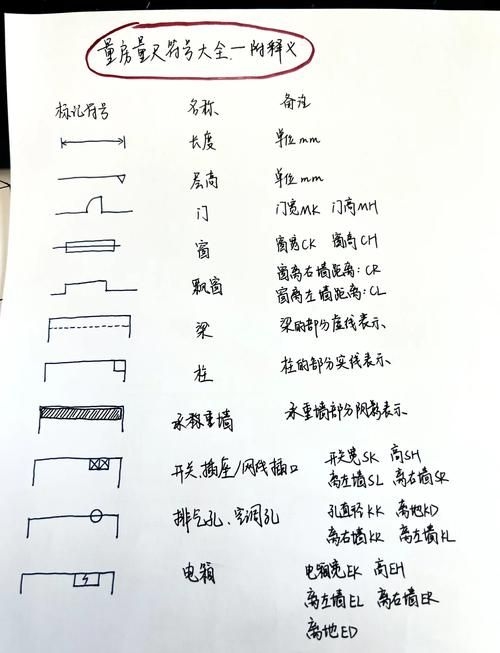 量房量尺符号大全—附释义
标记符号 名称 备注
长度 单位mm
层高 单位mm
门 门宽MK 门高MH
窗 窗宽CK 窗高CH
窗离右墙距离:CR
飘窗 窗离左墙距离:CL
梁 梁的部分虚线表示、
柱 柱的部分实线表示、
承重墙 承重墙部分阴影表示、
开关、插座/网线插口 开关宽SK 高SH
离左墙SL 离右墙SR
排气孔、空调孔 孔直径KK 离地KD
离右墙KR 离左墙KL
电箱 电箱宽EK 高EH
离左墙EL 离右墙ER
离地ED